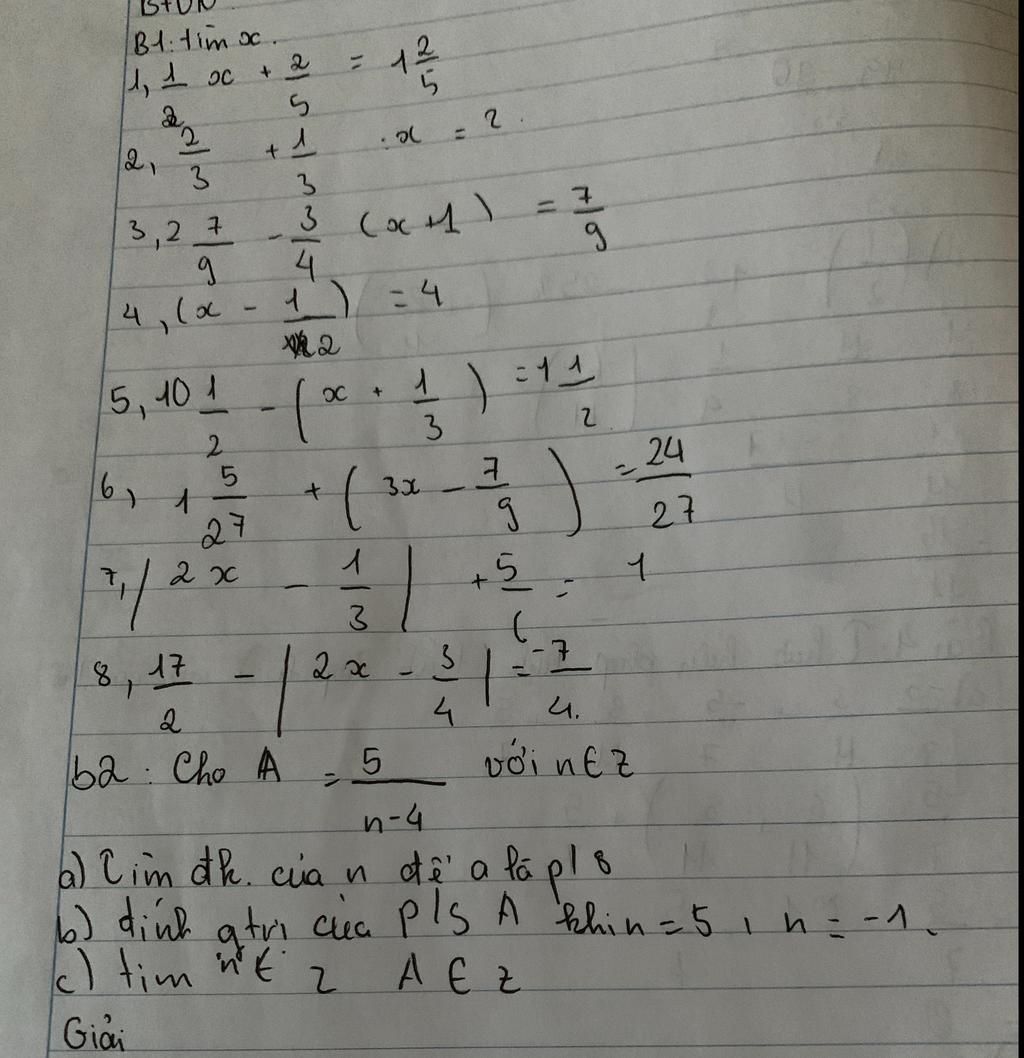 B1: tìm x.
1, 1/2 x + 2/5 = 1 2/5
2, 2/3 + 1/3 . x = 2.
3, 2 7/9 - 3/4 (x+1) = 7/9
4, (x - 1/2) = 4
5, 10 1/2 - (x + 1/3) = 1 1/2
6, 1 5/27 + (3x - 7/9) = 24/27
7, |2x - 1/3| + 5/6 = 1
8, 17/2 - |2x - 3/4| = -7/4.
b2: Cho A = 5/n-4 với n∈Z
a) Tìm đk. của n để a là p/s
b) tính gtrị của P/S A khi n = 5, n = -1.
c) tìm n ∈ Z A ∈ Z
Giải